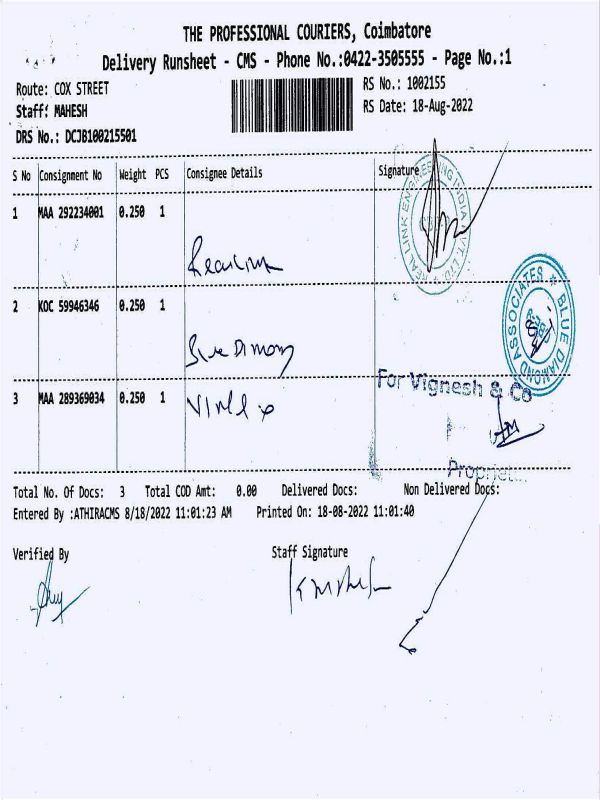 THE PROFESSIONAL COURIERS, Coimbatore
Delivery Runsheet - CMS - Phone No.:0422-3505555 - Page No.:1
Route: COX STREET
Staff: MAHESH
DRS No.: DCJB100215501
RS No.: 1002155
RS Date: 18-Aug-2022
S No Consignment No Weight PCS Consignee Details Signature
1 MAA 292234001 0.250 1
REAL LINK ENGINEERING INDIA PVT LTD
2 KOC 59946346 0.250 1
BLUE DIAMOND ASSOCIATES
Blue Dimony
3 MAA 289369034 0.250 1
For Vignesh & Co
Total No. Of Docs: 3 Total COD Amt: 0.00 Delivered Docs: Non Delivered Docs:
Entered By :ATHIRACMS 8/18/2022 11:01:23 AM Printed On: 18-08-2022 11:01:40
Verified By
Staff Signature